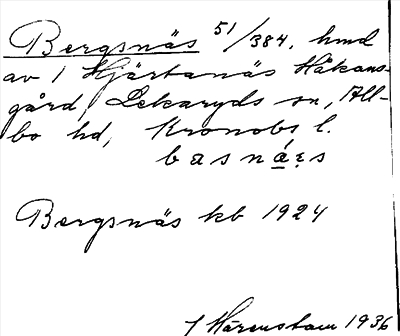 Bergsnäs 51/384, hmd
av 1 Hjärtanäs Håkans-
gård, Lekaryds sn, All-
bo hd, Kronobs l.
basnáes
Bergsnäs kb 1924
1936